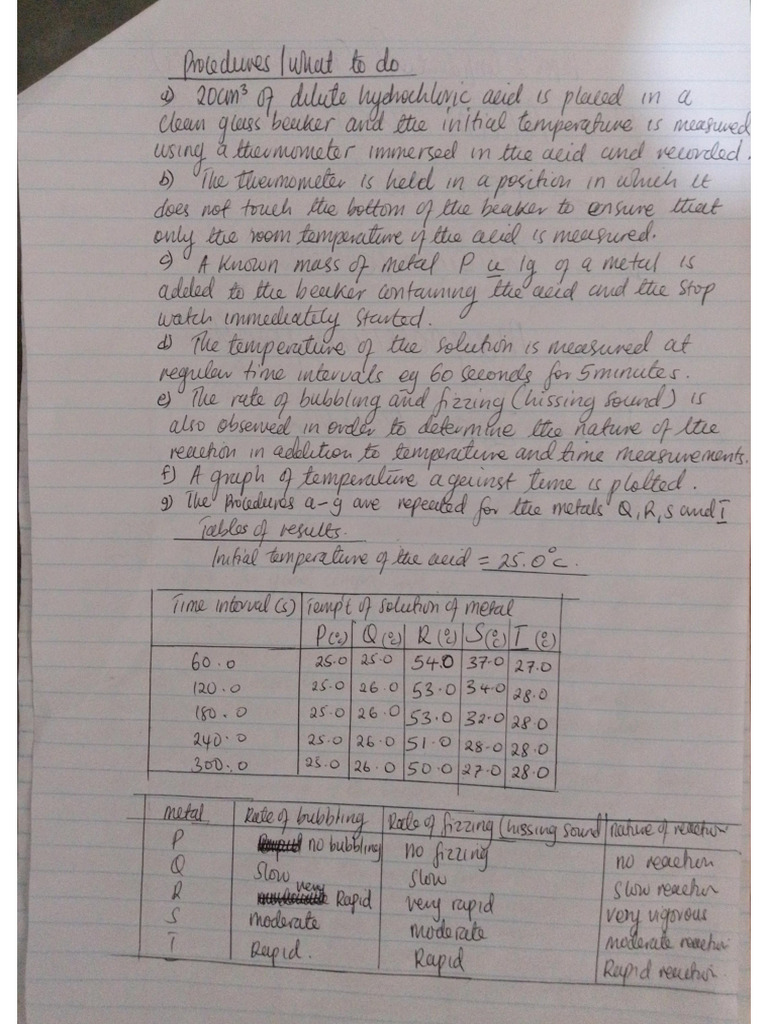 Procedures/what to do
a) 20cm³ of dilute hydrochloric acid is placed in a
clean glass beaker and the initial temperature is measured
using a thermometer immersed in the acid and recorded.
b) The thermometer is held in a position in which it
does not touch the bottom of the beaker to ensure that
only the room temperature of the acid is measured.
c) A known mass of metal P ie 1g of a metal is
added to the beaker containing the acid and the stop
watch immediately started.
d) The temperature of the solution is measured at
regular time intervals eg 60 seconds for 5 minutes.
e) The rate of bubbling and fizzing (hissing sound) is
also observed in order to determine the nature of the
reaction in addition to temperature and time measurements.
f) A graph of temperature against time is plotted.
g) The procedures a-g are repeated for the metals Q, R, S and T
Tables of results.
Initial temperature of the acid = 25.0°c.
Time interval (s) Temp't of solution of metal
P(°c) Q(°c) R(°c) S(°c) T(°c)
60.0 25.0 25.0 54.0 37.0 27.0
120.0 25.0 26.0 53.0 34.0 28.0
180.0 25.0 26.0 53.0 32.0 28.0
240.0 25.0 26.0 51.0 28.0 28.0
300.0 25.0 26.0 50.0 27.0 28.0
metal Rate of bubbling Rate of fizzing (hissing sound) nature of reaction
P no bubbling no fizzing no reaction
Q Slow slow slow reaction
R very Rapid very rapid very vigorous
S moderate moderate moderate reaction
T Rapid. Rapid Rapid reaction.